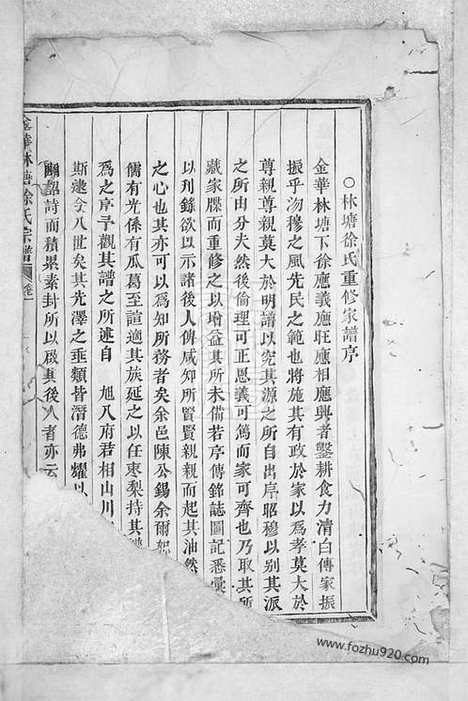 ○林塘徐氏重修家譜序
金華林塘下徐應義應旺應相應興者鑿耕食力清白傳家振
振乎沕穆之風先民之範也將施其有政於家以爲孝莫大於
尊親尊親莫大於明譜以究其源之所自出序昭穆以別其派
之所由分夫然後倫理可正恩義可篤而家可齊也乃取其所
藏家牒而重修之以增益其所未備若序傳銘誌圖記悉彙
以刋錄欲以示諸後人俾咸知所賢賢親親而起其油然
之心也其亦可以爲知所務者矣余邑陳公錫余爾恕
儒有光係有瓜葛至誼適其族延之以任棗梨持其譜
爲之序予觀其譜之所逑自 旭八府君相山川
斯逮今八世矣其光澤之垂類皆潛德弗耀以
關詔詩而積累素封所以啟其後人者亦云
金華林塘徐氏宗譜 卷一
www.fozhu920.com